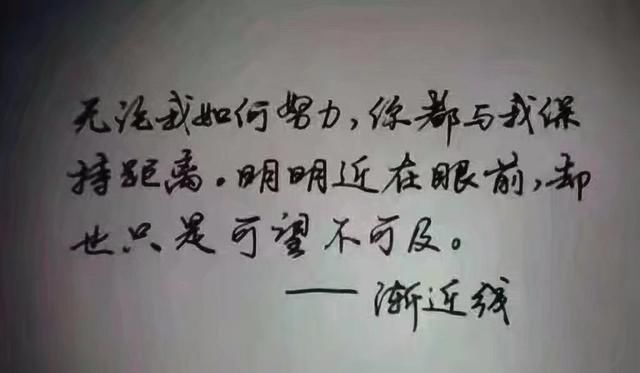 无论我如何努力,你都与我保
持距离。明明近在眼前,却
也只是可望不可及。
——渐近线